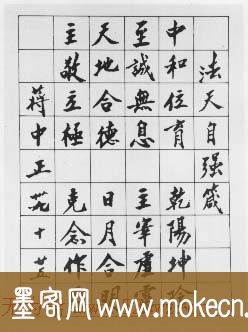 法天自强箴
中和位育 乾陽坤陰
至誠無息 主宰虛
天地合德 日月合明
主敬立極 克念作
蔣中正 十
墨客网 www.mokecn